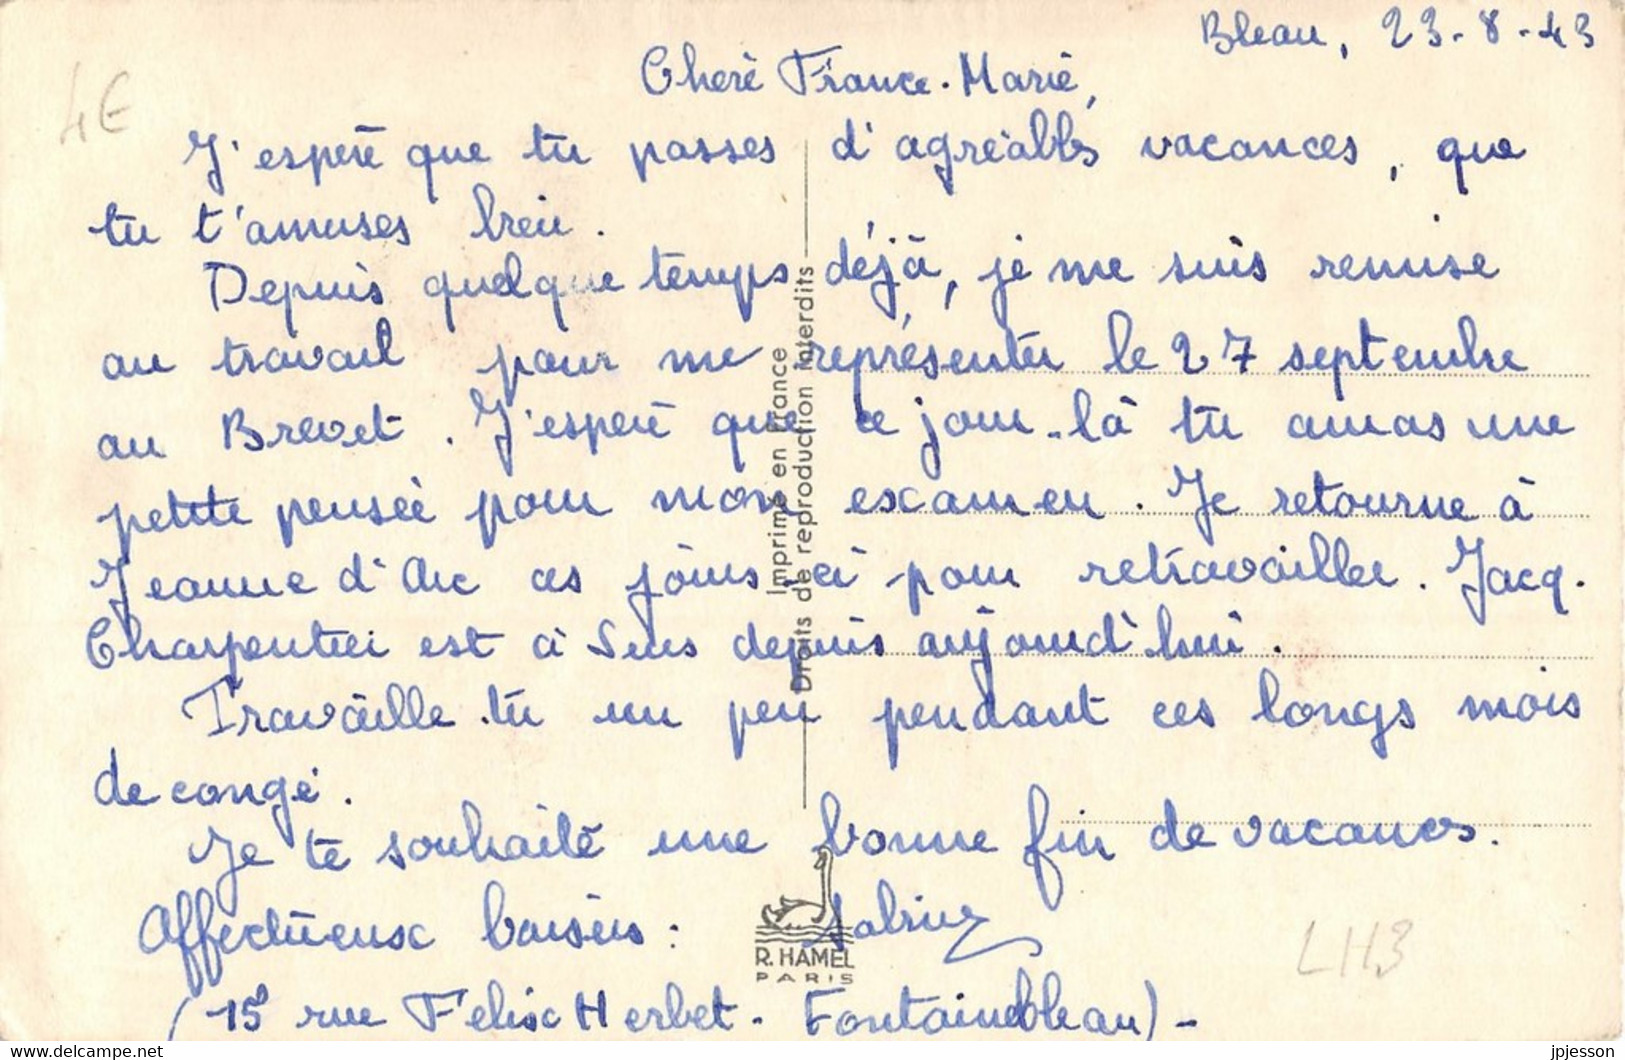 Bleau, 23-8-43
4€
Cherè France-Marie,
J'espère que tu passes d'agréables vacances, que
tu t'amuses bien.
Depuis quelque temps déjà, je me suis remise
au travail pour me représenter le 27 septembre
au Brevet. J'espère que ce jour-là tu auras une
petite pensée pour mon examen. Je retourne à
Jeanne d'Arc ces jours-ci pour retravailler. Jacq.
Charpentier est à Sens depuis aujourd'hui.
Travaille-tu un peu pendant ces longs mois
de congé.
Je te souhaite une bonne fin de vacances.
Affectueux baisers : Sabrina
(15 rue Félix Herbet - Fontainebleau) -
Imprimé en France
Droits de reproduction interdits
R. HAMEL
PARIS
LH3
www.delcampe.net
jpjesson